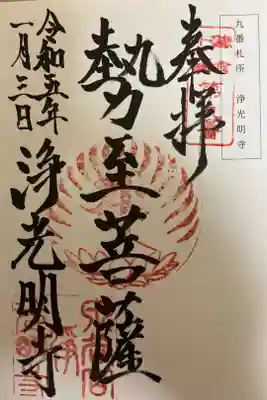 九番札所 浄光明寺
奉拝
勢至菩薩
浄光明寺
令和五年
一月三日